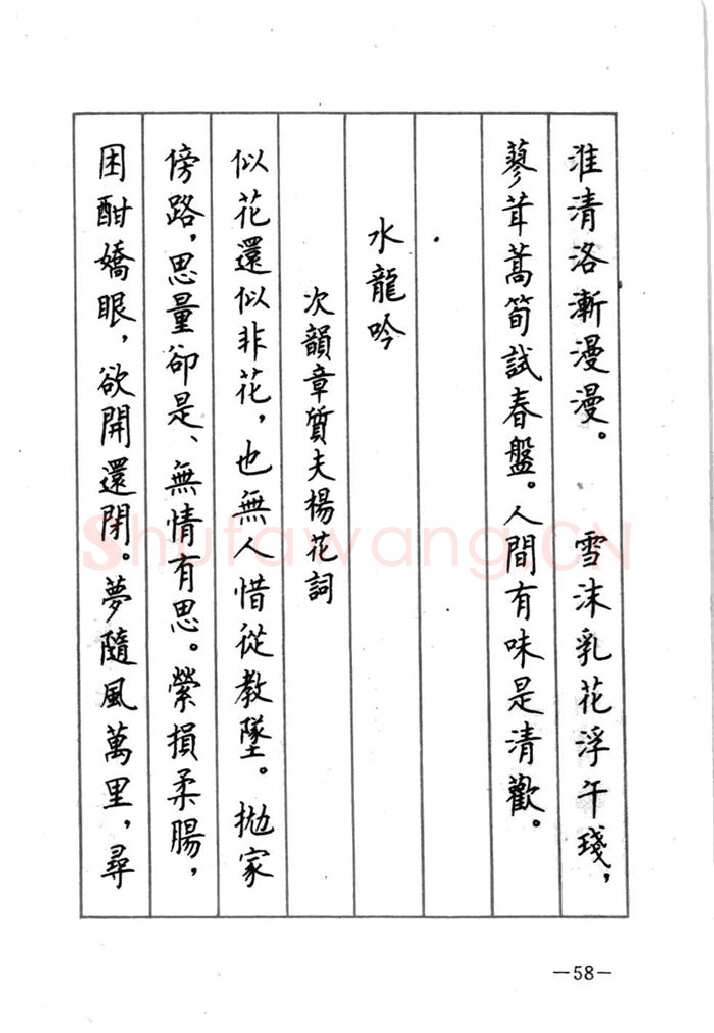 淮清洛漸漫漫。 雪沫乳花浮午琖，
蓼茸蒿筍試春盤。人間有味是清歡。
水龍吟
次韻章質夫楊花詞
似花還似非花，也無人惜從教墜。拋家
傍路，思量卻是、無情有思。縈損柔腸，
困酣嬌眼，欲開還閉。夢隨風萬里，尋
Shufawang.CN
—58—